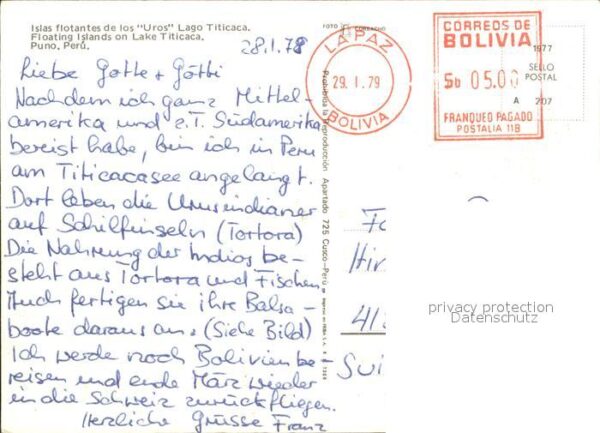 Islas flotantes de los "Uros" Lago Titicaca.
Floating Islands on Lake Titicaca.
Puno, Perú.
FOTO
28.1.78
Liebe Gotte + Götti
Nachdem ich ganz Mittel-
amerika und z.T. Südamerika
bereist habe, bin ich in Peru
am Titicacasee angelangt.
Dort leben die Urusindianer
auf Schilfinseln (Tortora)
Die Nahrung der Indios be-
steht aus Tortora und Fischen
Auch fertigen sie ihre Balsa-
boote daraus an. (Siehe Bild)
Ich werde noch Bolivien be-
reisen und ende März wieder
in die Schweiz zurückfliegen.
Herzliche Grüsse Franz
Prohibida la Reproducción Apartado 725 Cusco-Perú
LA PAZ
29. 1. 79
BOLIVIA
CORREOS DE
BOLIVIA
$b 05.00
FRANQUEO PAGADO
POSTALIA 118
1977
SELLO
POSTAL
A 207
Hir
Sui
privacy protection
Datenschutz